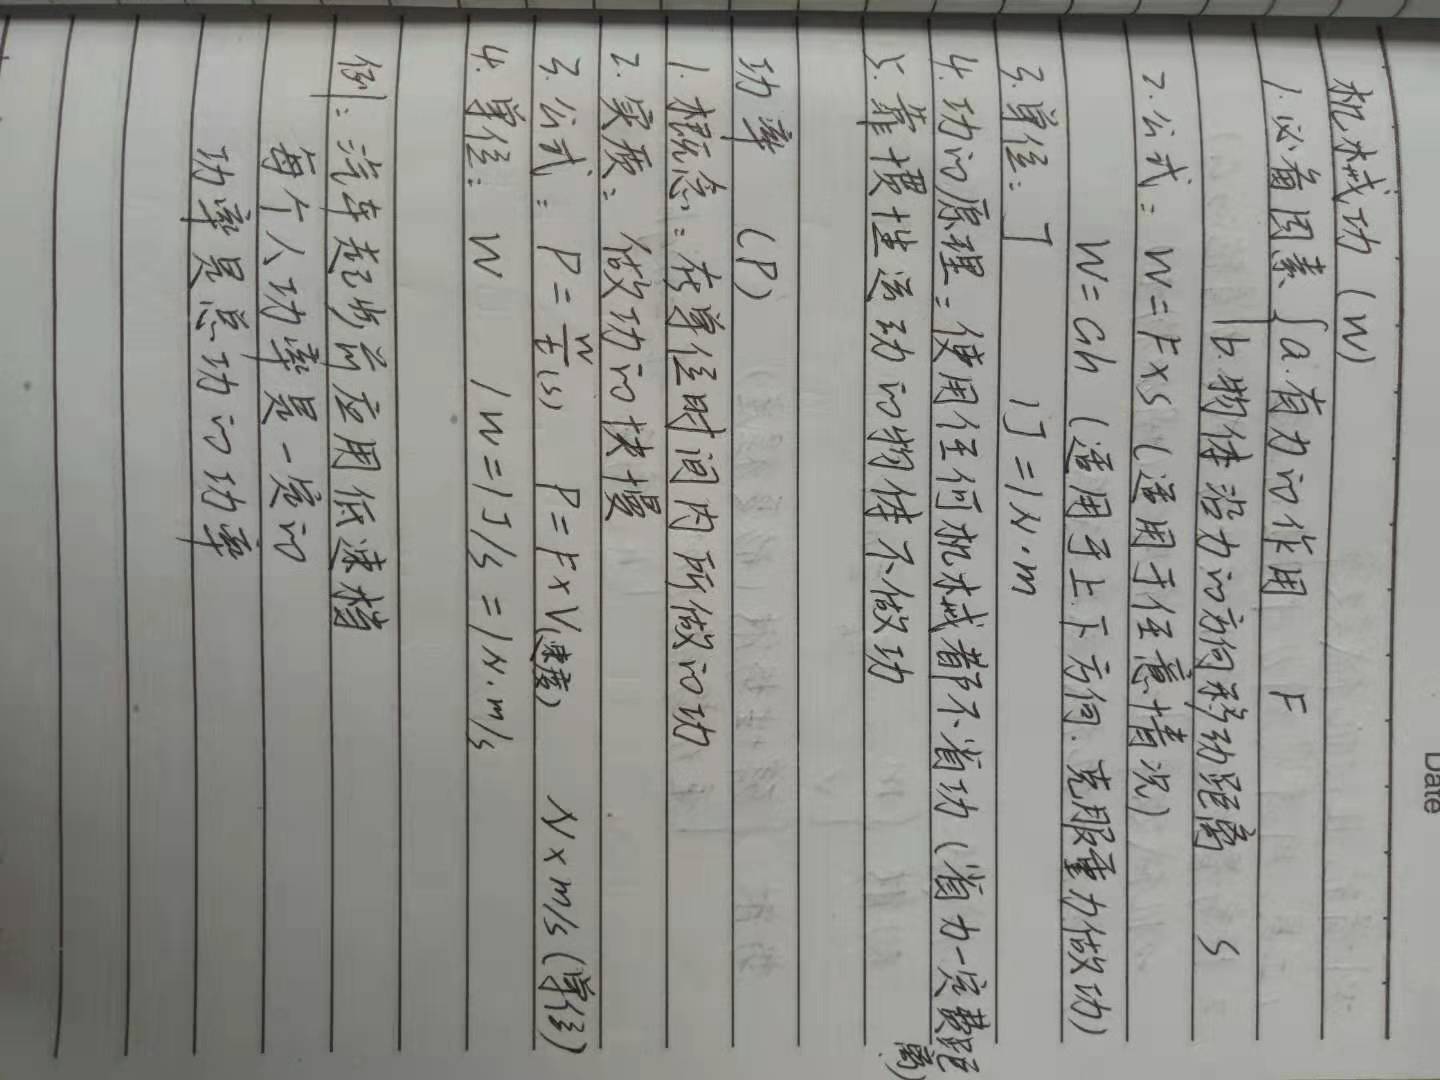 Date
机械功 (W)
1.必备因素 { a.有力的作用 F
b.物体沿力的方向移动距离 S
2.公式: W=F×S (适用于任意情况)
W=Gh (适用于上下方向.克服重力做功)
3.单位: J 1J=1N·m
4.功的原理:使用任何机械都不省功 (省力一定费距离)
5.靠惯性运动的物体不做功
功率 (P)
1.概念:在单位时间内所做的功
2.实质:做功的快慢
3.公式: P=W/t(s) P=F×V(速度) N×m/s (单位)
4.单位: W 1W=1J/s=1N·m/s
例:汽车起步前应用低速档
每个人功率是一定的
功率是总功的功率